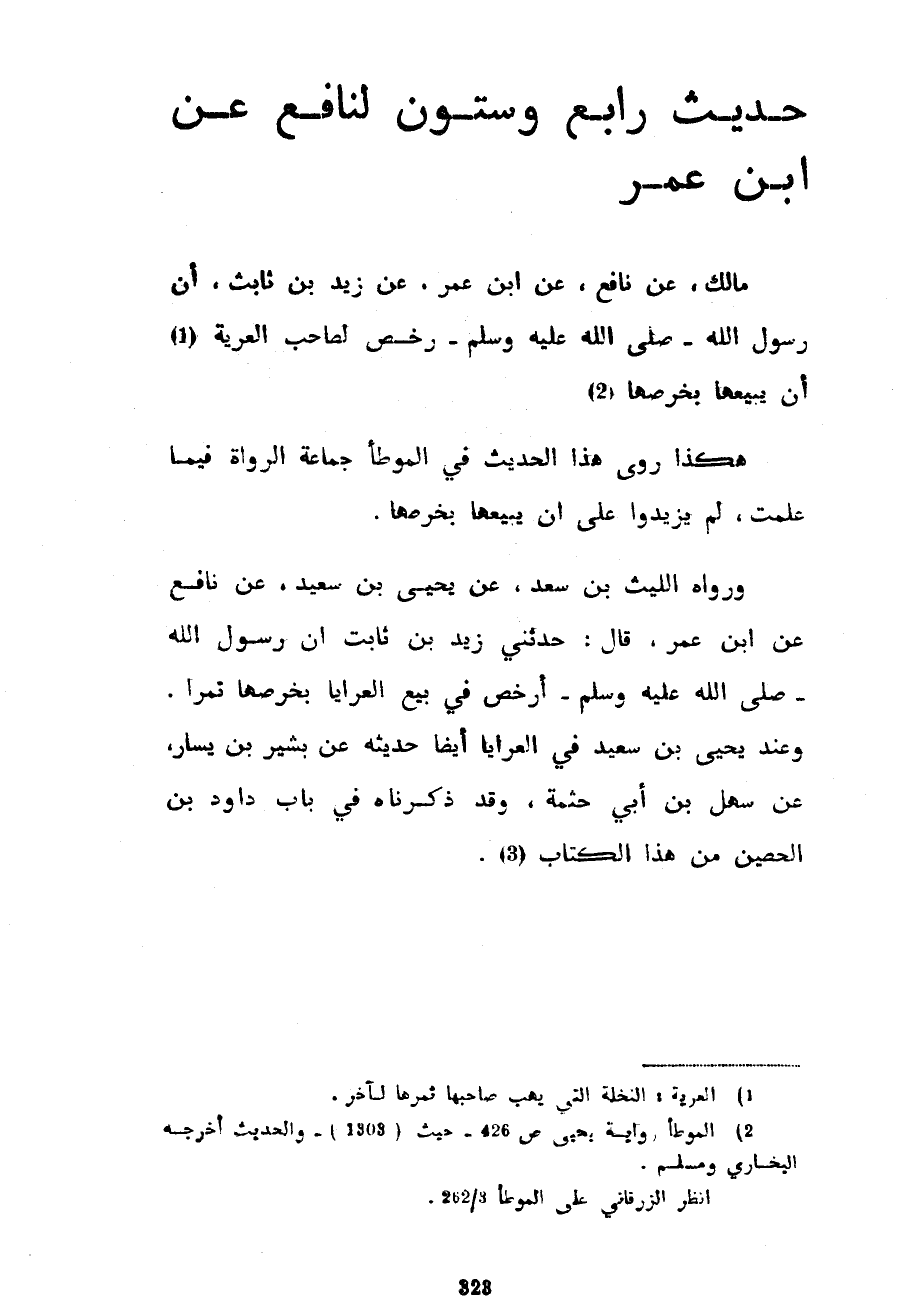 حديث رابع وستون لنافع عن
ابن عمر
مالك، عن نافع ، عن ابن عمر . عن زيد بن ثابث ، أن
رسول الله - صلى الله عليه وسلم - رخص لصاحب العرية (1)
أن يبيعها بخرصها (2)
هكذا روى هذا الحديث في الموطأ جماعة الرواة فيما
علمت ، لم يزيدوا على ان يبيعها بخرصها .
ورواه الليث بن سعد ، عن يحيى بن سعيد ، عن نافع
عن ابن عمر ، قال : حدثني زيد بن ثابت ان رسول الله
- صلى الله عليه وسلم - أرخص في بيع العرايا بخرصها تمرا .
وعند يحيى بن سعيد في العرايا أيضا حديثه عن بشير بن يسار،
عن سهل بن أبي حثمة ، وقد ذكرناه في باب داود بن
الحصين من هذا الكتاب (3) .
1) العرية : النخلة التي يهب صاحبها ثمرها لآخر .
2) الموطأ رواية يحيى ص 426 - حيث ( 1303 ) - والحديث أخرجه
البخاري ومسلم .
انظر الزرقاني على الموطأ 262/3 .
323